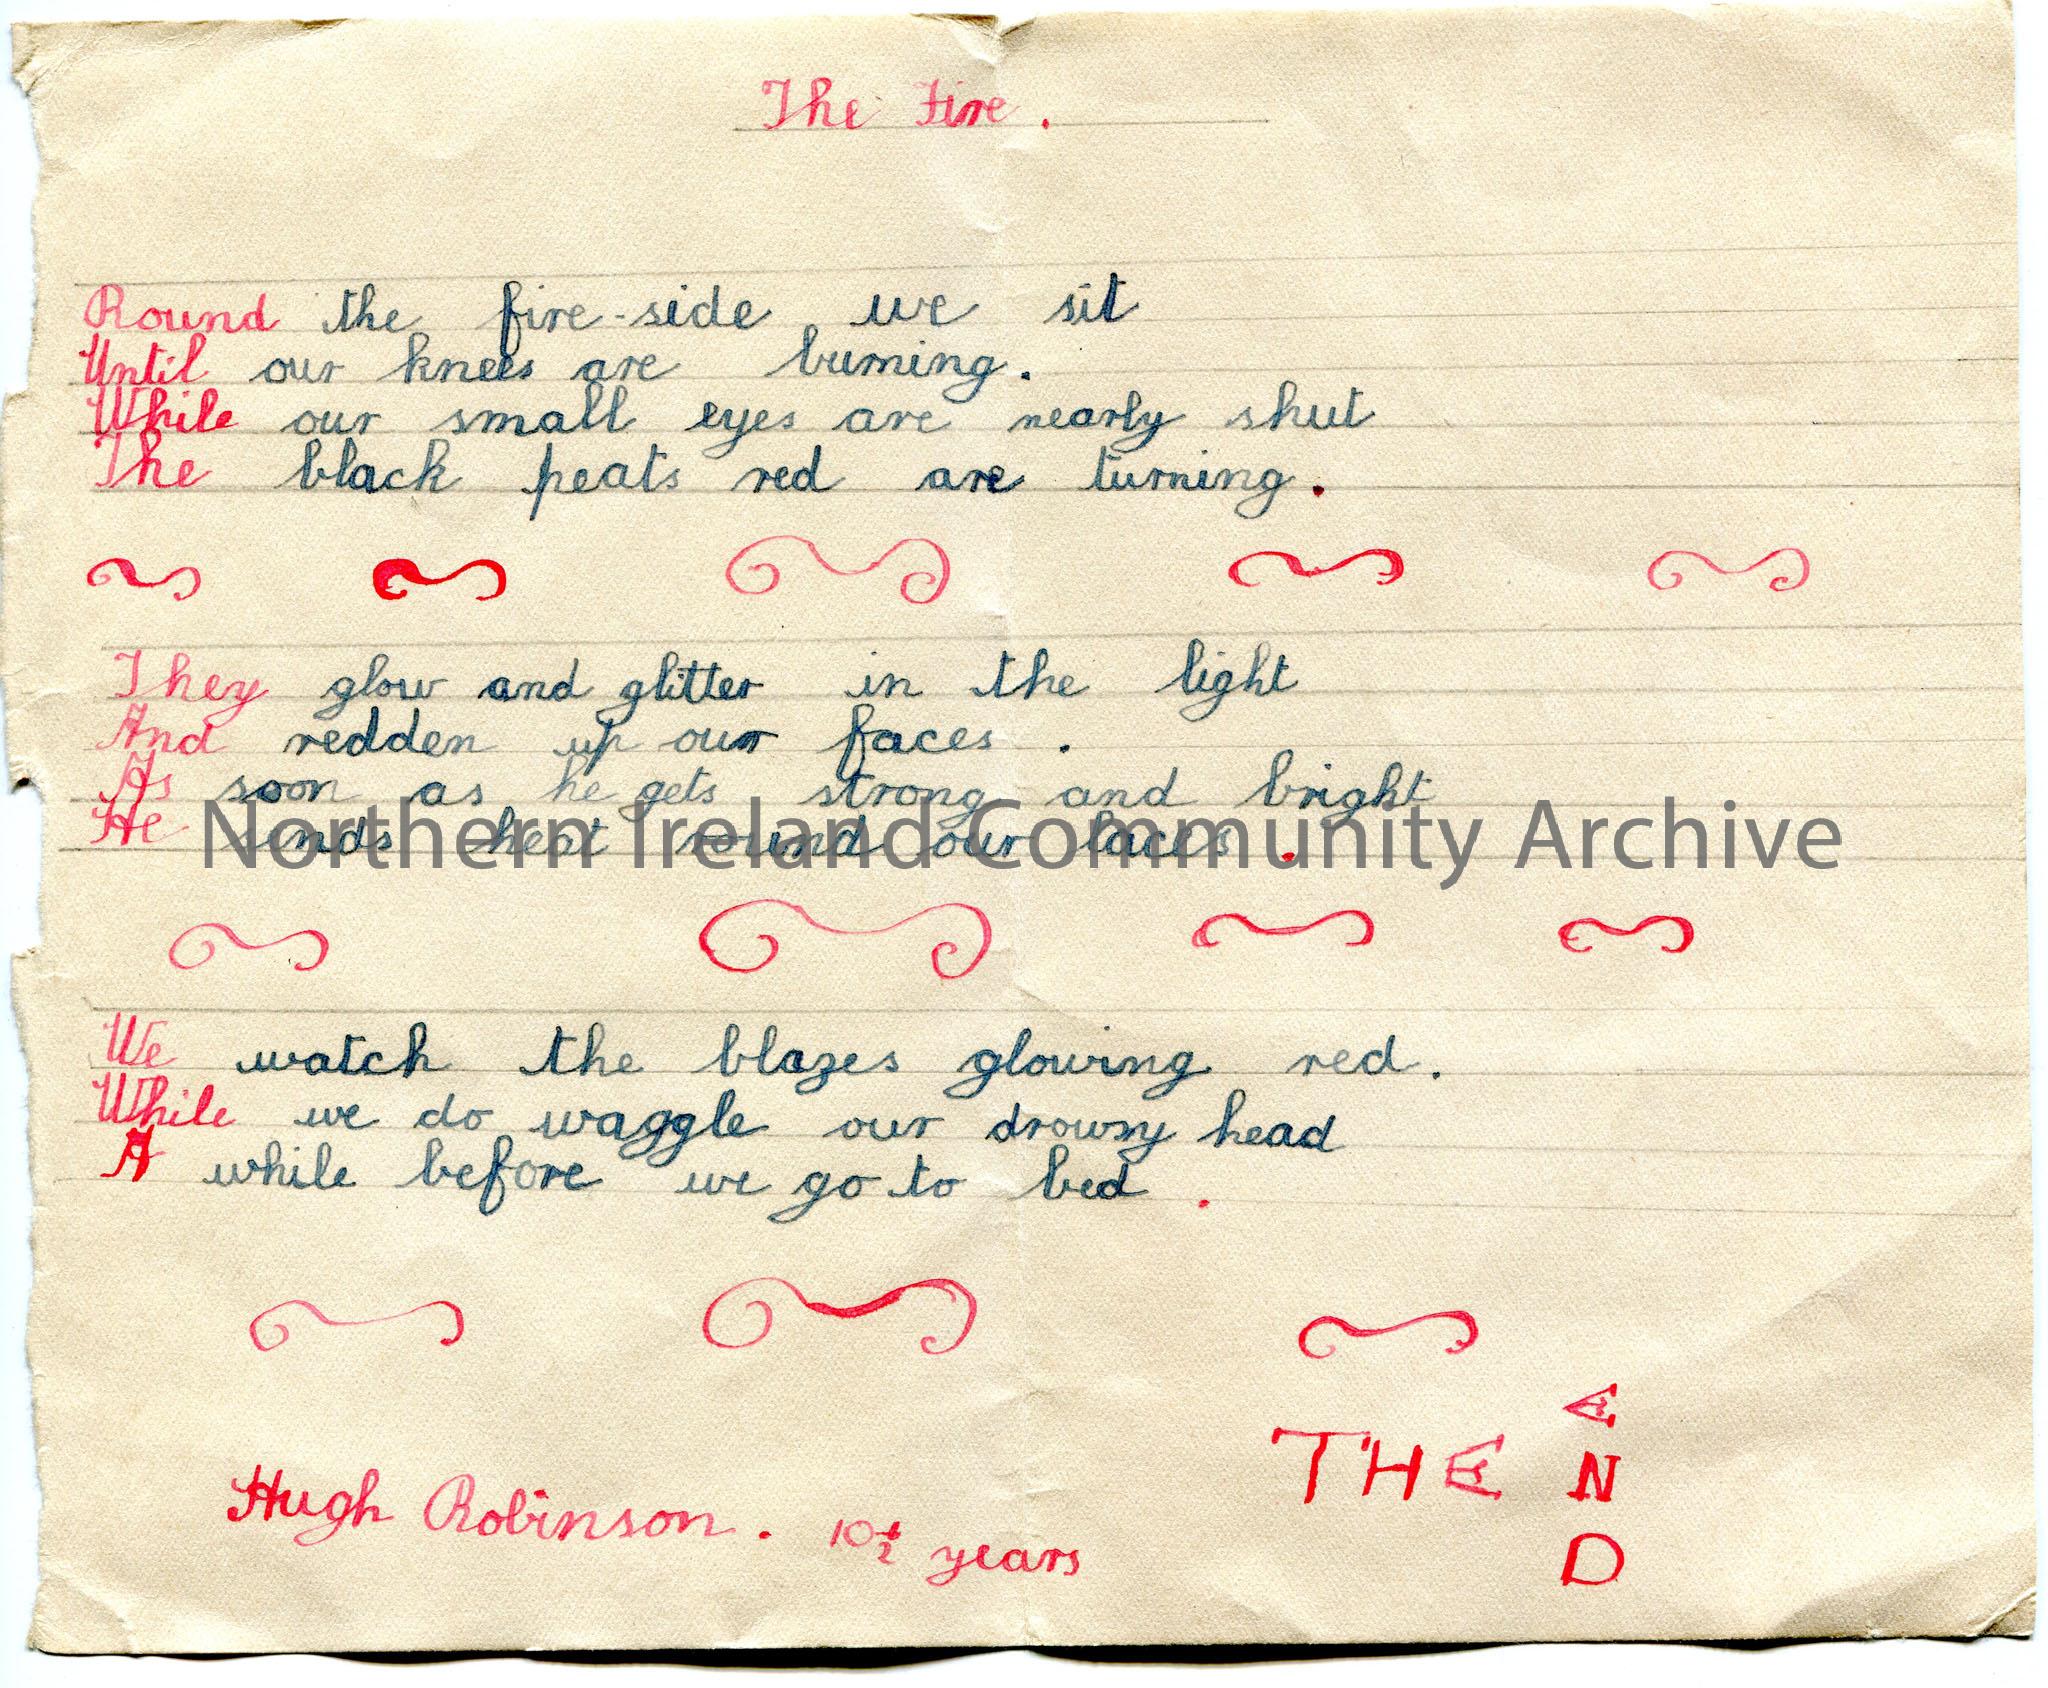 The Fire.
Round the fire-side we sit
Until our knees are burning.
While our small eyes are nearly shut
The black peats red are turning.
They glow and glitter in the light
And redden up our faces.
As soon as he gets strong and bright
He sends heat round our laces.
Northern Ireland Community Archive
We watch the blazes glowing red.
While we do waggle our drowsy head
A while before we go to bed.
THE END
Hugh Robinson. 10½ years